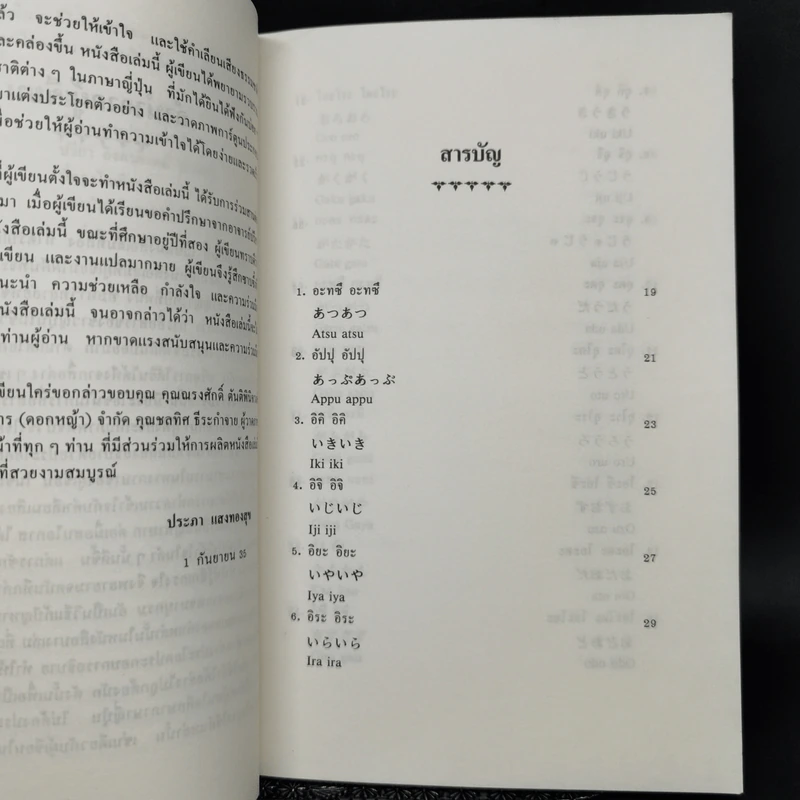 ล้ว จะช่วยให้เข้าใจ และใช้คำเลียนเสียงธรรม
ละคล่องขึ้น หนังสือเล่มนี้ ผู้เขียนได้พยายาม
ชาติต่าง ๆ ในภาษาญี่ปุ่น ที่มักได้ยินได้ฟังกัน
มาแต่งประโยคตัวอย่าง และวาดภาพการ์ตูน
ื่อช่วยให้ผู้อ่านทำความเข้าใจได้โดยง่าย
ที่ผู้เขียนตั้งใจจะทำหนังสือเล่มนี้ ได้รับการร่วม
มา เมื่อผู้เขียนได้เรียนขอคำปรึกษาจากอาจารย์
นังสือเล่มนี้ ขณะที่ศึกษาอยู่ปีที่สอง ผู้เขียน
เขียน และงานแปลมากมาย ผู้เขียนจึงรู้สึก
นะนำ ความช่วยเหลือ กำลังใจ และความร่วม
นังสือเล่มนี้ จนอาจกล่าวได้ว่า หนังสือเล่มนี้
ท่านผู้อ่าน หากขาดแรงสนับสนุนและความร่วม
เขียนใคร่ขอกล่าวขอบคุณ คุณณรงศักดิ์
การ (ดอกหญ้า) จำกัด คุณชลทิศ ธีระกำจาย
น้าที่ทุก ๆ ท่าน ที่มีส่วนร่วมให้การผลิตหนังสือ
ที่สวยงามสมบูรณ์
ประภา แสงทองสุข
1 กันยายน 35
สารบัญ
1. อะทซึ อะทซึ 19
あつあつ
Atsu atsu
2. อัปปุ อัปปุ 21
あっぷあっぷ
Appu appu
3. อิคิ อิคิ 23
いきいき
Iki iki
4. อิจิ อิจิ 25
いじいじ
Iji iji
5. อิยะ อิยะ 27
いやいや
Iya iya
6. อิระ อิระ 29
いらいら
Ira ira